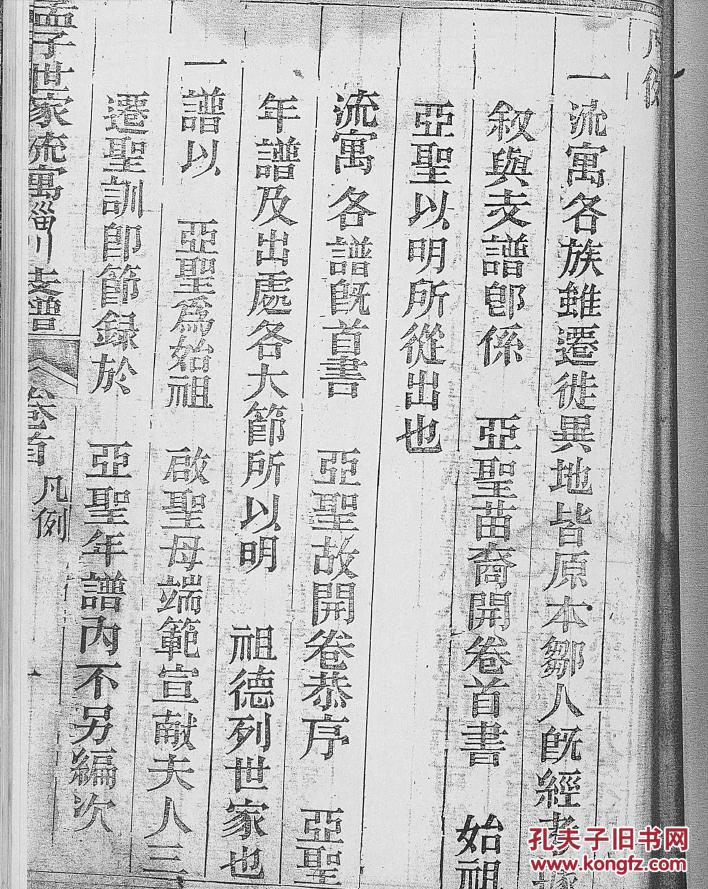 凡例
一流寓各族雖遷徙異地皆原本鄒人旣經考據
叙與支譜卽係 亞聖苗裔開卷首書 始祖
亞聖以明所從出也
流寓各譜旣首書 亞聖故開卷恭序 亞聖
年譜及出處各大節所以明 祖德列世家也
一譜以 亞聖爲始祖 啟聖母端範宣献夫人三
遷聖訓卽節録於 亞聖年譜內不另編次
孟子世家流寓淄川支譜 卷首 凡例 一
孔夫子旧书网
www.kongfz.com